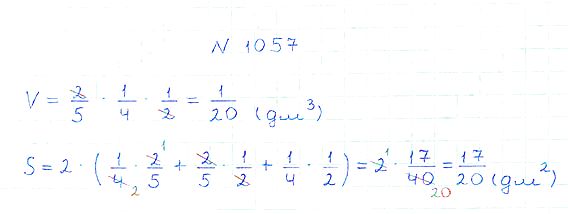 N 1057
V = 2/5 · 1/4 · 1/2 = 1/20 (дм³)
S = 2 · (1/4 2 · 2 1/5 + 2/5 · 1/2 + 1/4 · 1/2) = 2 1 · 17/40 20 = 17/20 (дм²)